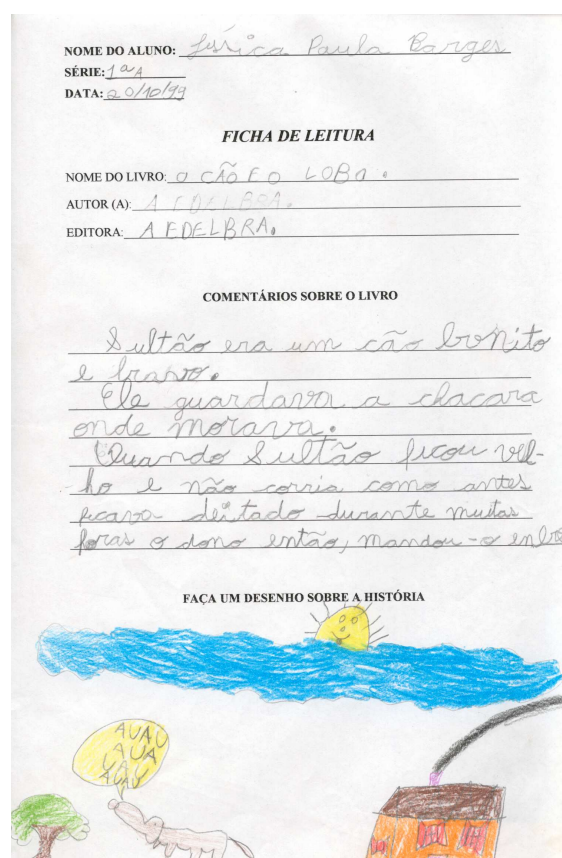 NOME DO ALUNO: Jéssica Paula Barges
SÉRIE: 1ªA
DATA: 20/10/99
FICHA DE LEITURA
NOME DO LIVRO: O CÃO E O LOBO.
AUTOR (A): A EDELBRA.
EDITORA: A EDELBRA.
COMENTÁRIOS SOBRE O LIVRO
Sultão era um cão bonito
e bravo.
Ele guardava a chacara
onde morava.
Quando Sultão ficou vel-
-ho e não corria como antes
ficava deitado durante muitas
foras o dono então, mandou-o
FAÇA UM DESENHO SOBRE A HISTÓRIA
AUAU
AUA
UAU
AUAU